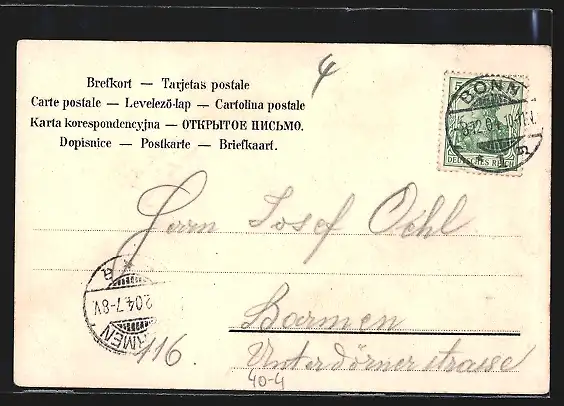 4
Brefkort — Tarjetas postale
Carte postale — Levelező-lap — Cartolina postale
Karta korespondencyjna — ОТКРЫТОЕ ПИСЬМО.
Dopisnice — Postkarte — Briefkaart.
BONN
DEUTSCHES REICH
Herrn Josef Oehl
Barmen
Unterdörnerstrasse
116.
BARMEN
04.7-8V.
40-4